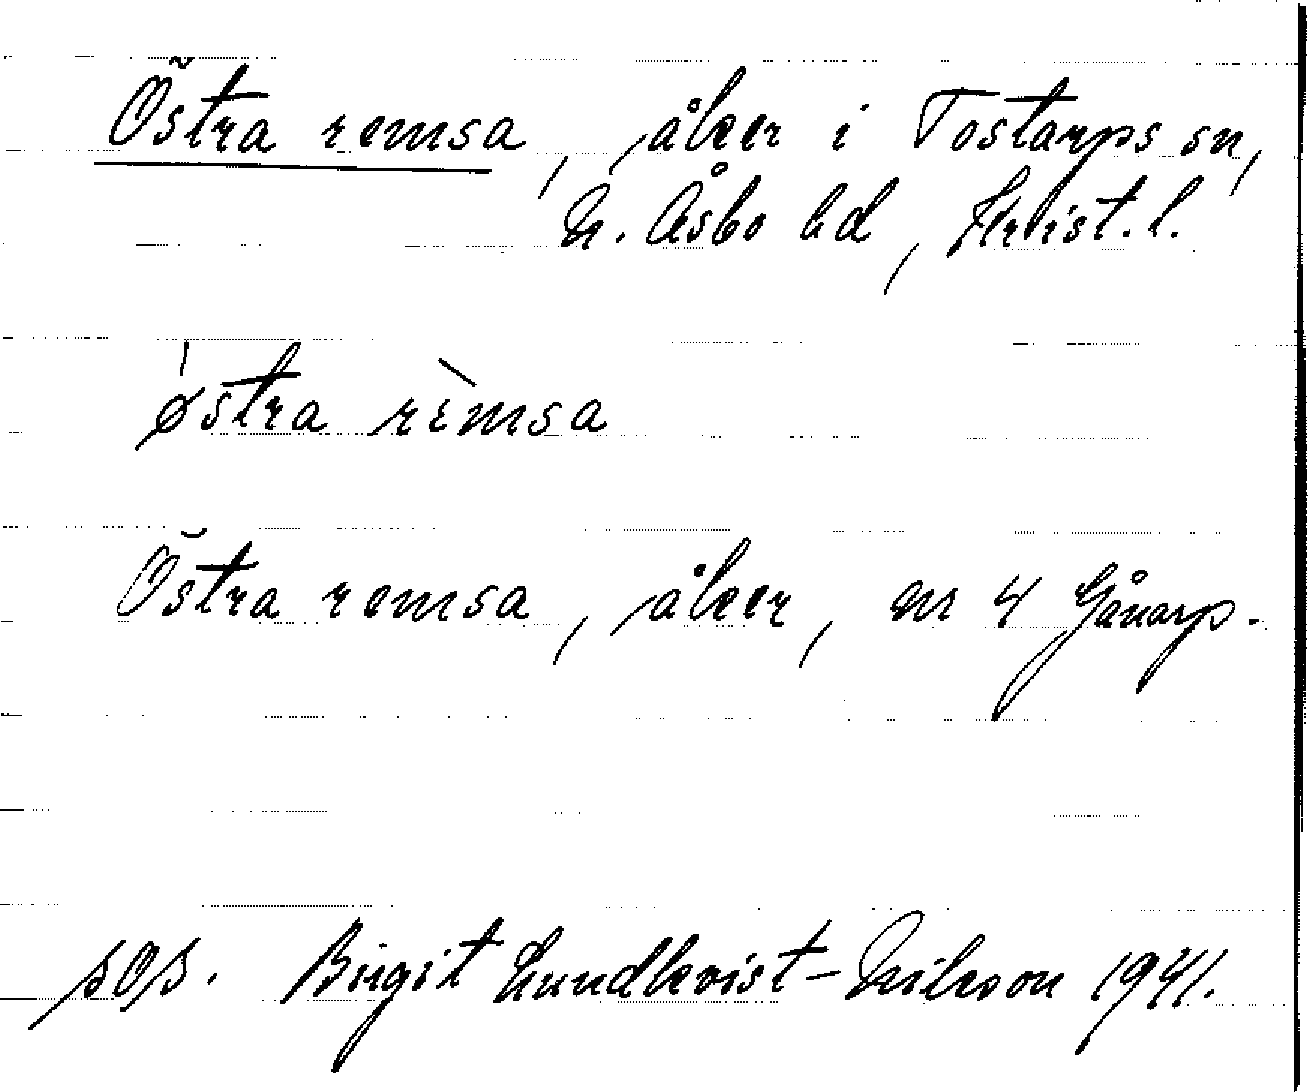 Östra remsa, åker i Tostarps sn,
N. Åsbo hd, Krist. l.
østra rèmsa
Östra remsa, åker, nr 4 Gånarp.
pOp. Birgit Lundkvist-Nilsson 1941.